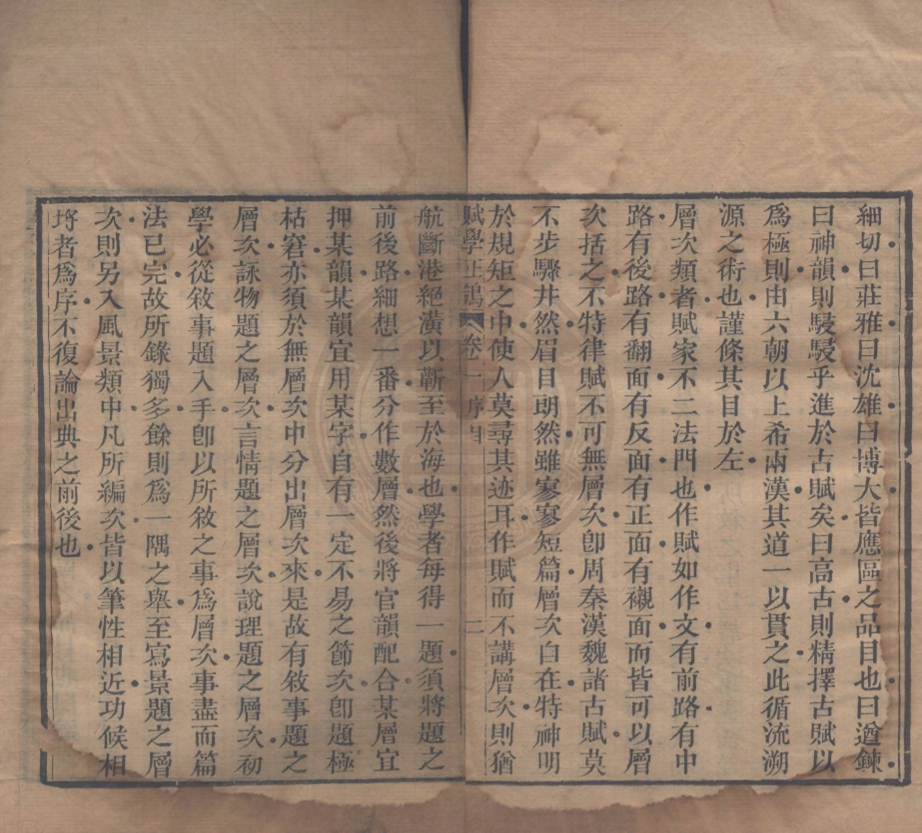 細切曰莊雅曰沈雄曰博大皆應區之品目也曰遒鍊
曰神韻則駸駸乎進於古賦矣曰高古則精擇古賦以
爲極則由六朝以上希兩漢其道一以貫之此循流溯
源之術也謹條其目於左
層次類者賦家不二法門也作賦如作文有前路有中
路有後路有翻面有反面有正面有襯面面皆可以層
次括之不特律賦不可無層次卽周秦漢魏諸古賦莫
不步驟井然眉目朗然雖寥寥短篇層次自在特神明
於規矩之中使人莫尋其迹耳作賦而不講層次則猶
賦學正鵠 卷一 序目 二
航斷港絕潢以蘄至於海也學者每得一題須將題之
前後路細想一番分作數層然後將官韻配合某層宜
押某韻某韻宜用某字自有一定不易之節次卽題極
枯窘亦須於無層次中分出層次來是故有敘事題之
層次詠物題之層次言情題之層次說理題之層次初
學必從敘事題入手卽以所敘之事爲層次事盡而篇
法已完故所錄獨多餘則爲一隅之舉至寫景題之層
次則另入風景類中凡所編次皆以筆性相近功候相
埒者爲序不復論出典之前後也